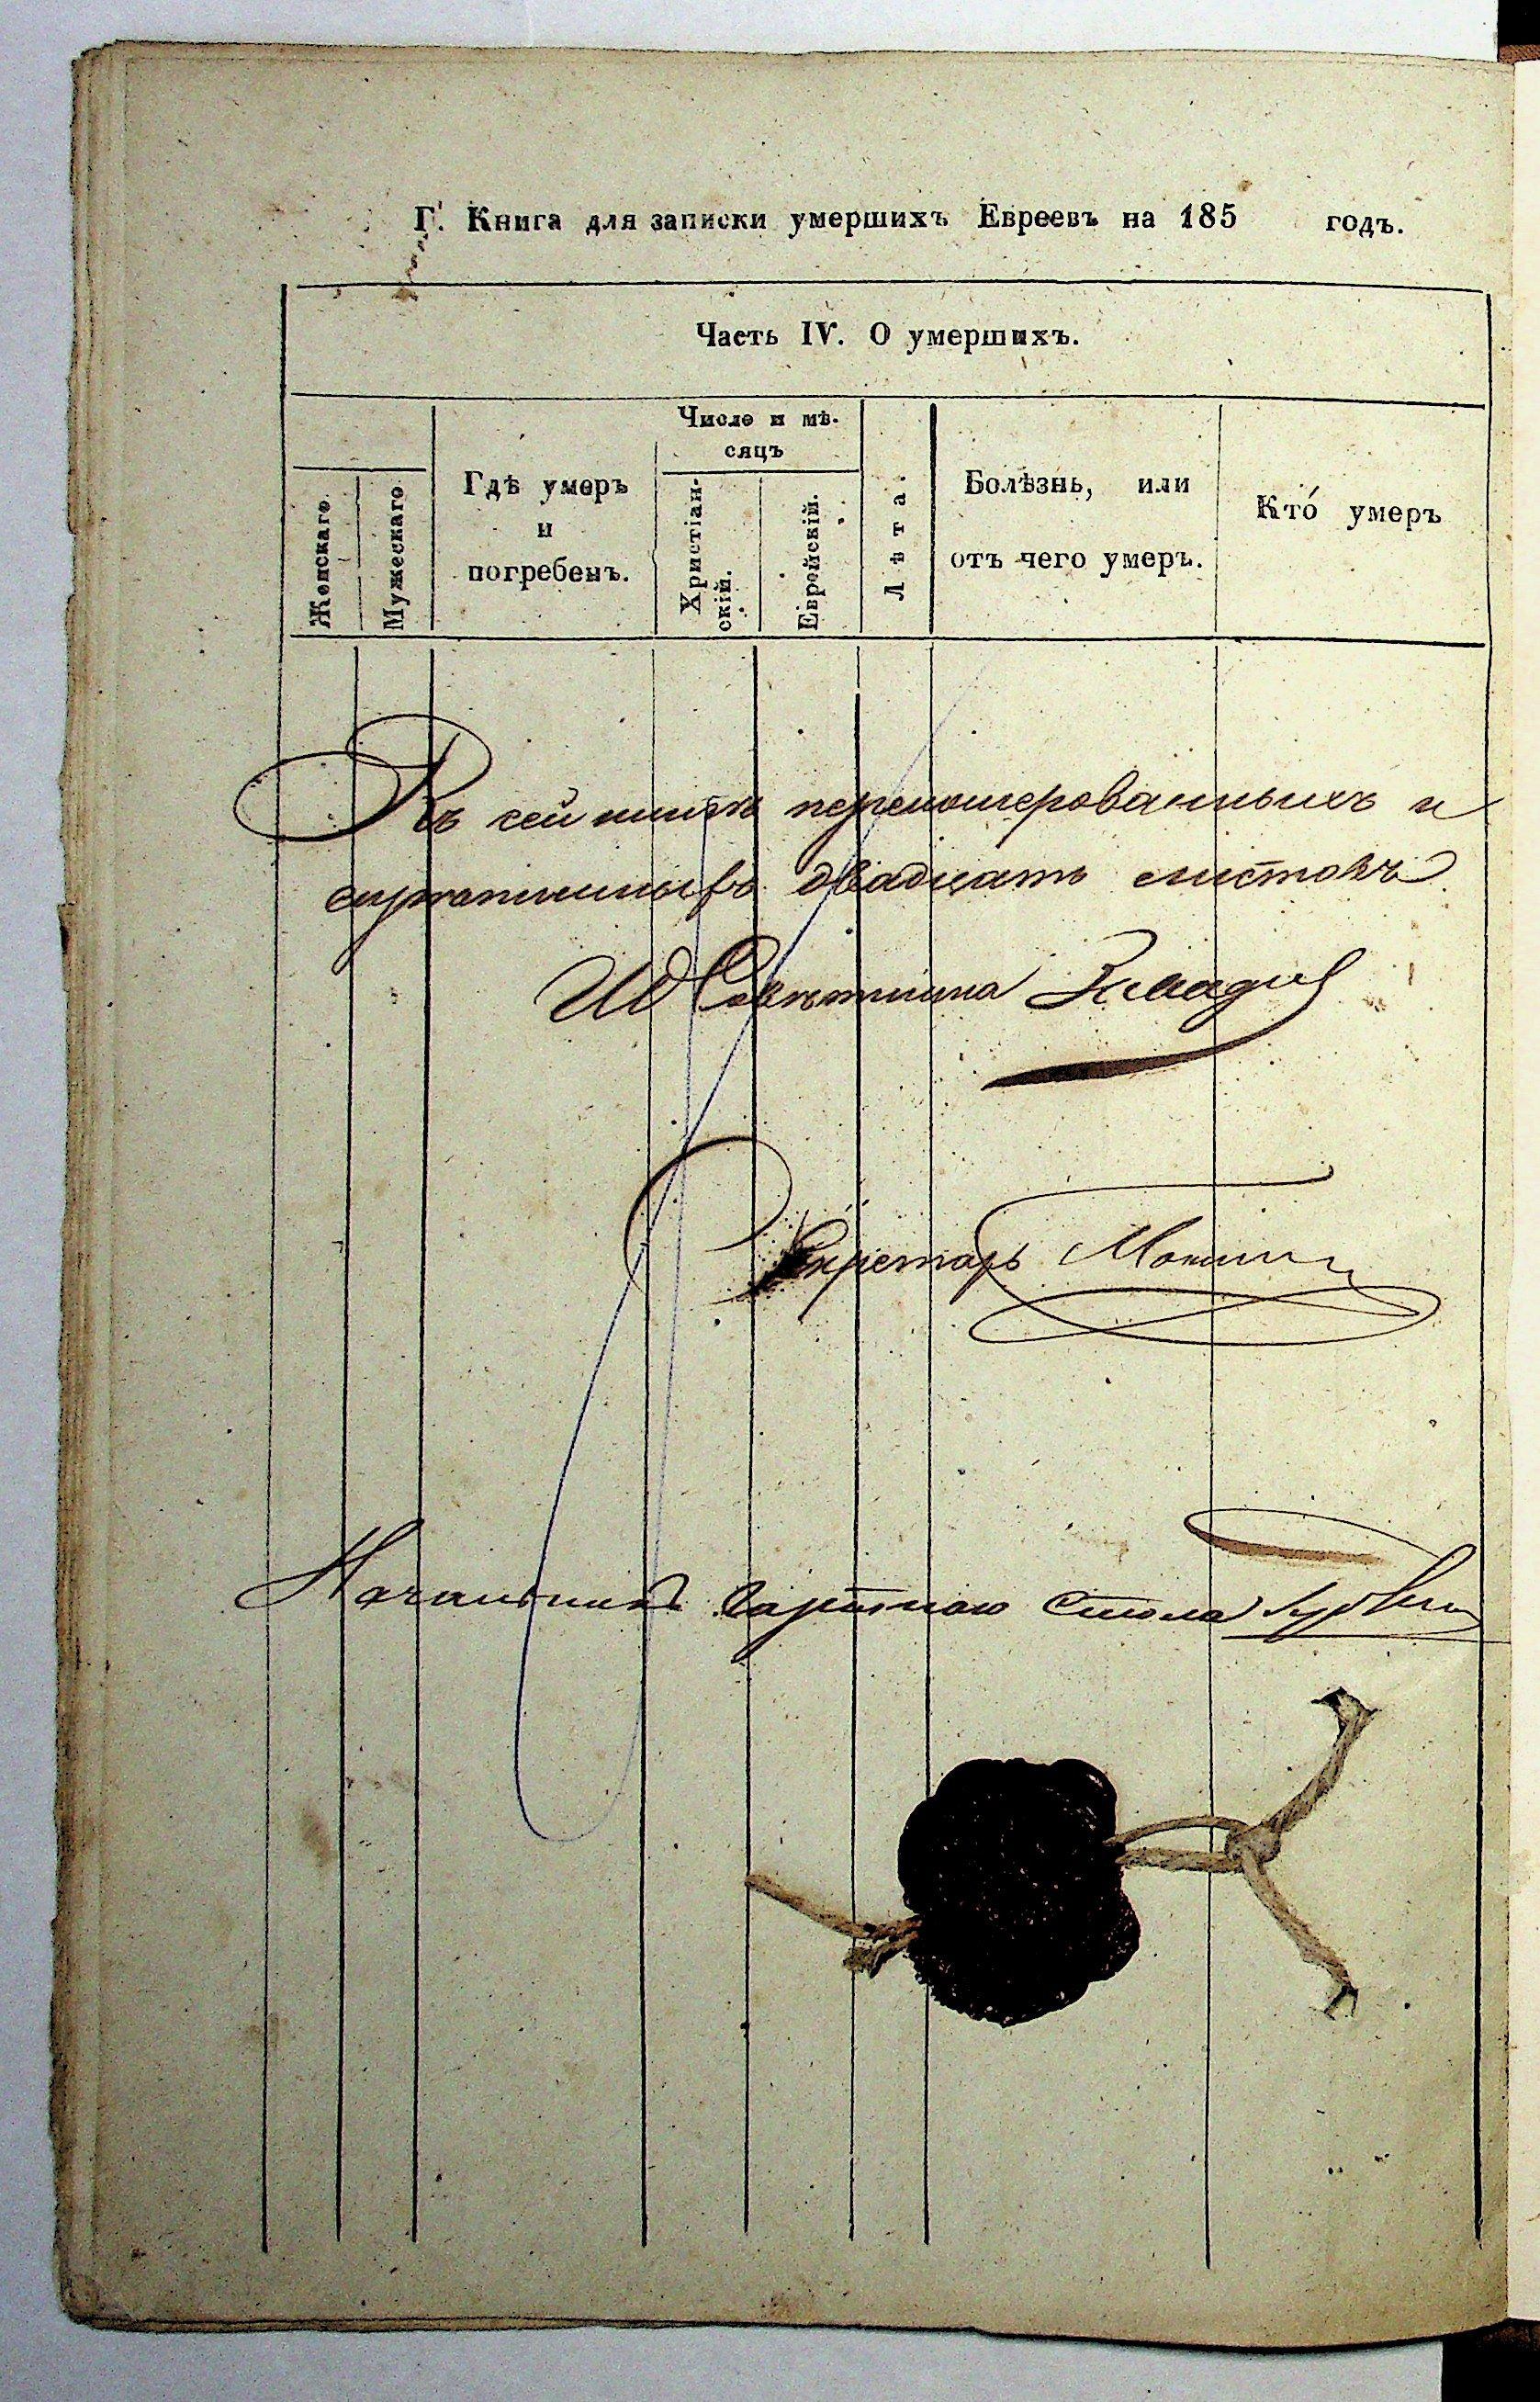 Г. Книга для записки умершихъ Евреевъ на 185 годъ.
Часть IV. О умершихъ.
Женскаго
Мужескаго
Гдѣ умеръ
и
погребенъ.
Число и мѣ-
сяцъ
Христіан-
скій.
Еврейскій.
Лѣта.
Болѣзнь, или
отъ чего умеръ.
Кто умеръ
Въ сей книгѣ перенумерованныхъ и
двадцать листовъ
ИД Совѣтника
Секретарь
Начальникъ Стола